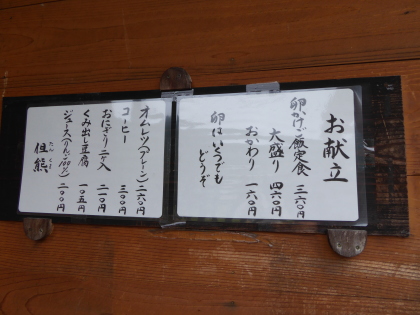 お献立
卵かけご飯定食 三六〇円
大盛り 四六〇円
おかわり 一六〇円
卵はいくつでも
どうぞ
オムレツ(プレーン) 二六〇円
コーヒー 三〇〇円
おにぎり二ヶ入 二一〇円
くみ出し豆腐 一〇五円
ジュース(りんご100%) 二〇〇円
但熊
たんくま